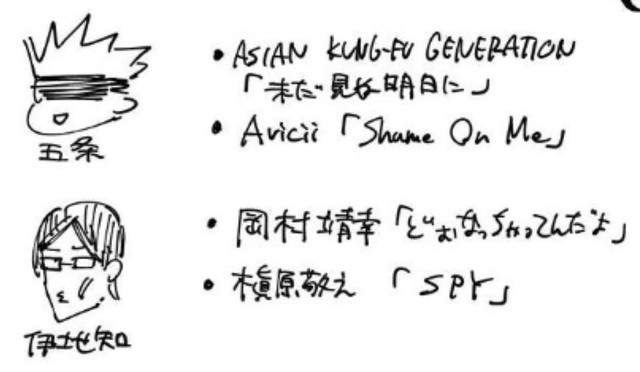 • ASIAN KUNG-FU GENERATION
「未だ見ぬ明日に」
• Avicii「Shame On Me」
五条
• 岡村靖幸「どぉなっちゃってんだよ」
• 槇原敬之「SPY」
伊地知